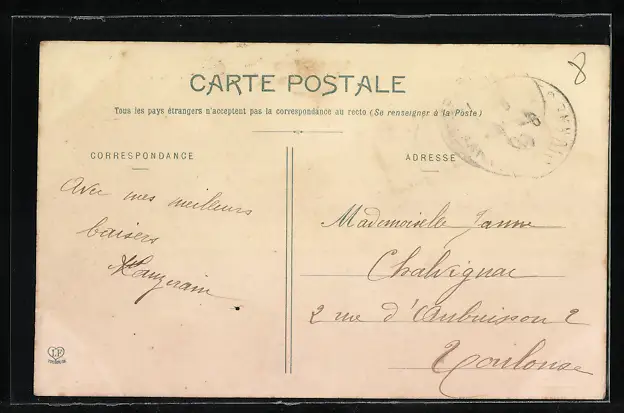 8
CARTE POSTALE
Tous les pays étrangers n'acceptent pas la correspondance au recto (Se renseigner à la Poste)
CORRESPONDANCE
ADRESSE
Avec mes meilleurs
baisers
Mademoiselle Janne
Chalvignac
2 rue d'Aubuisson 2
Toulouse